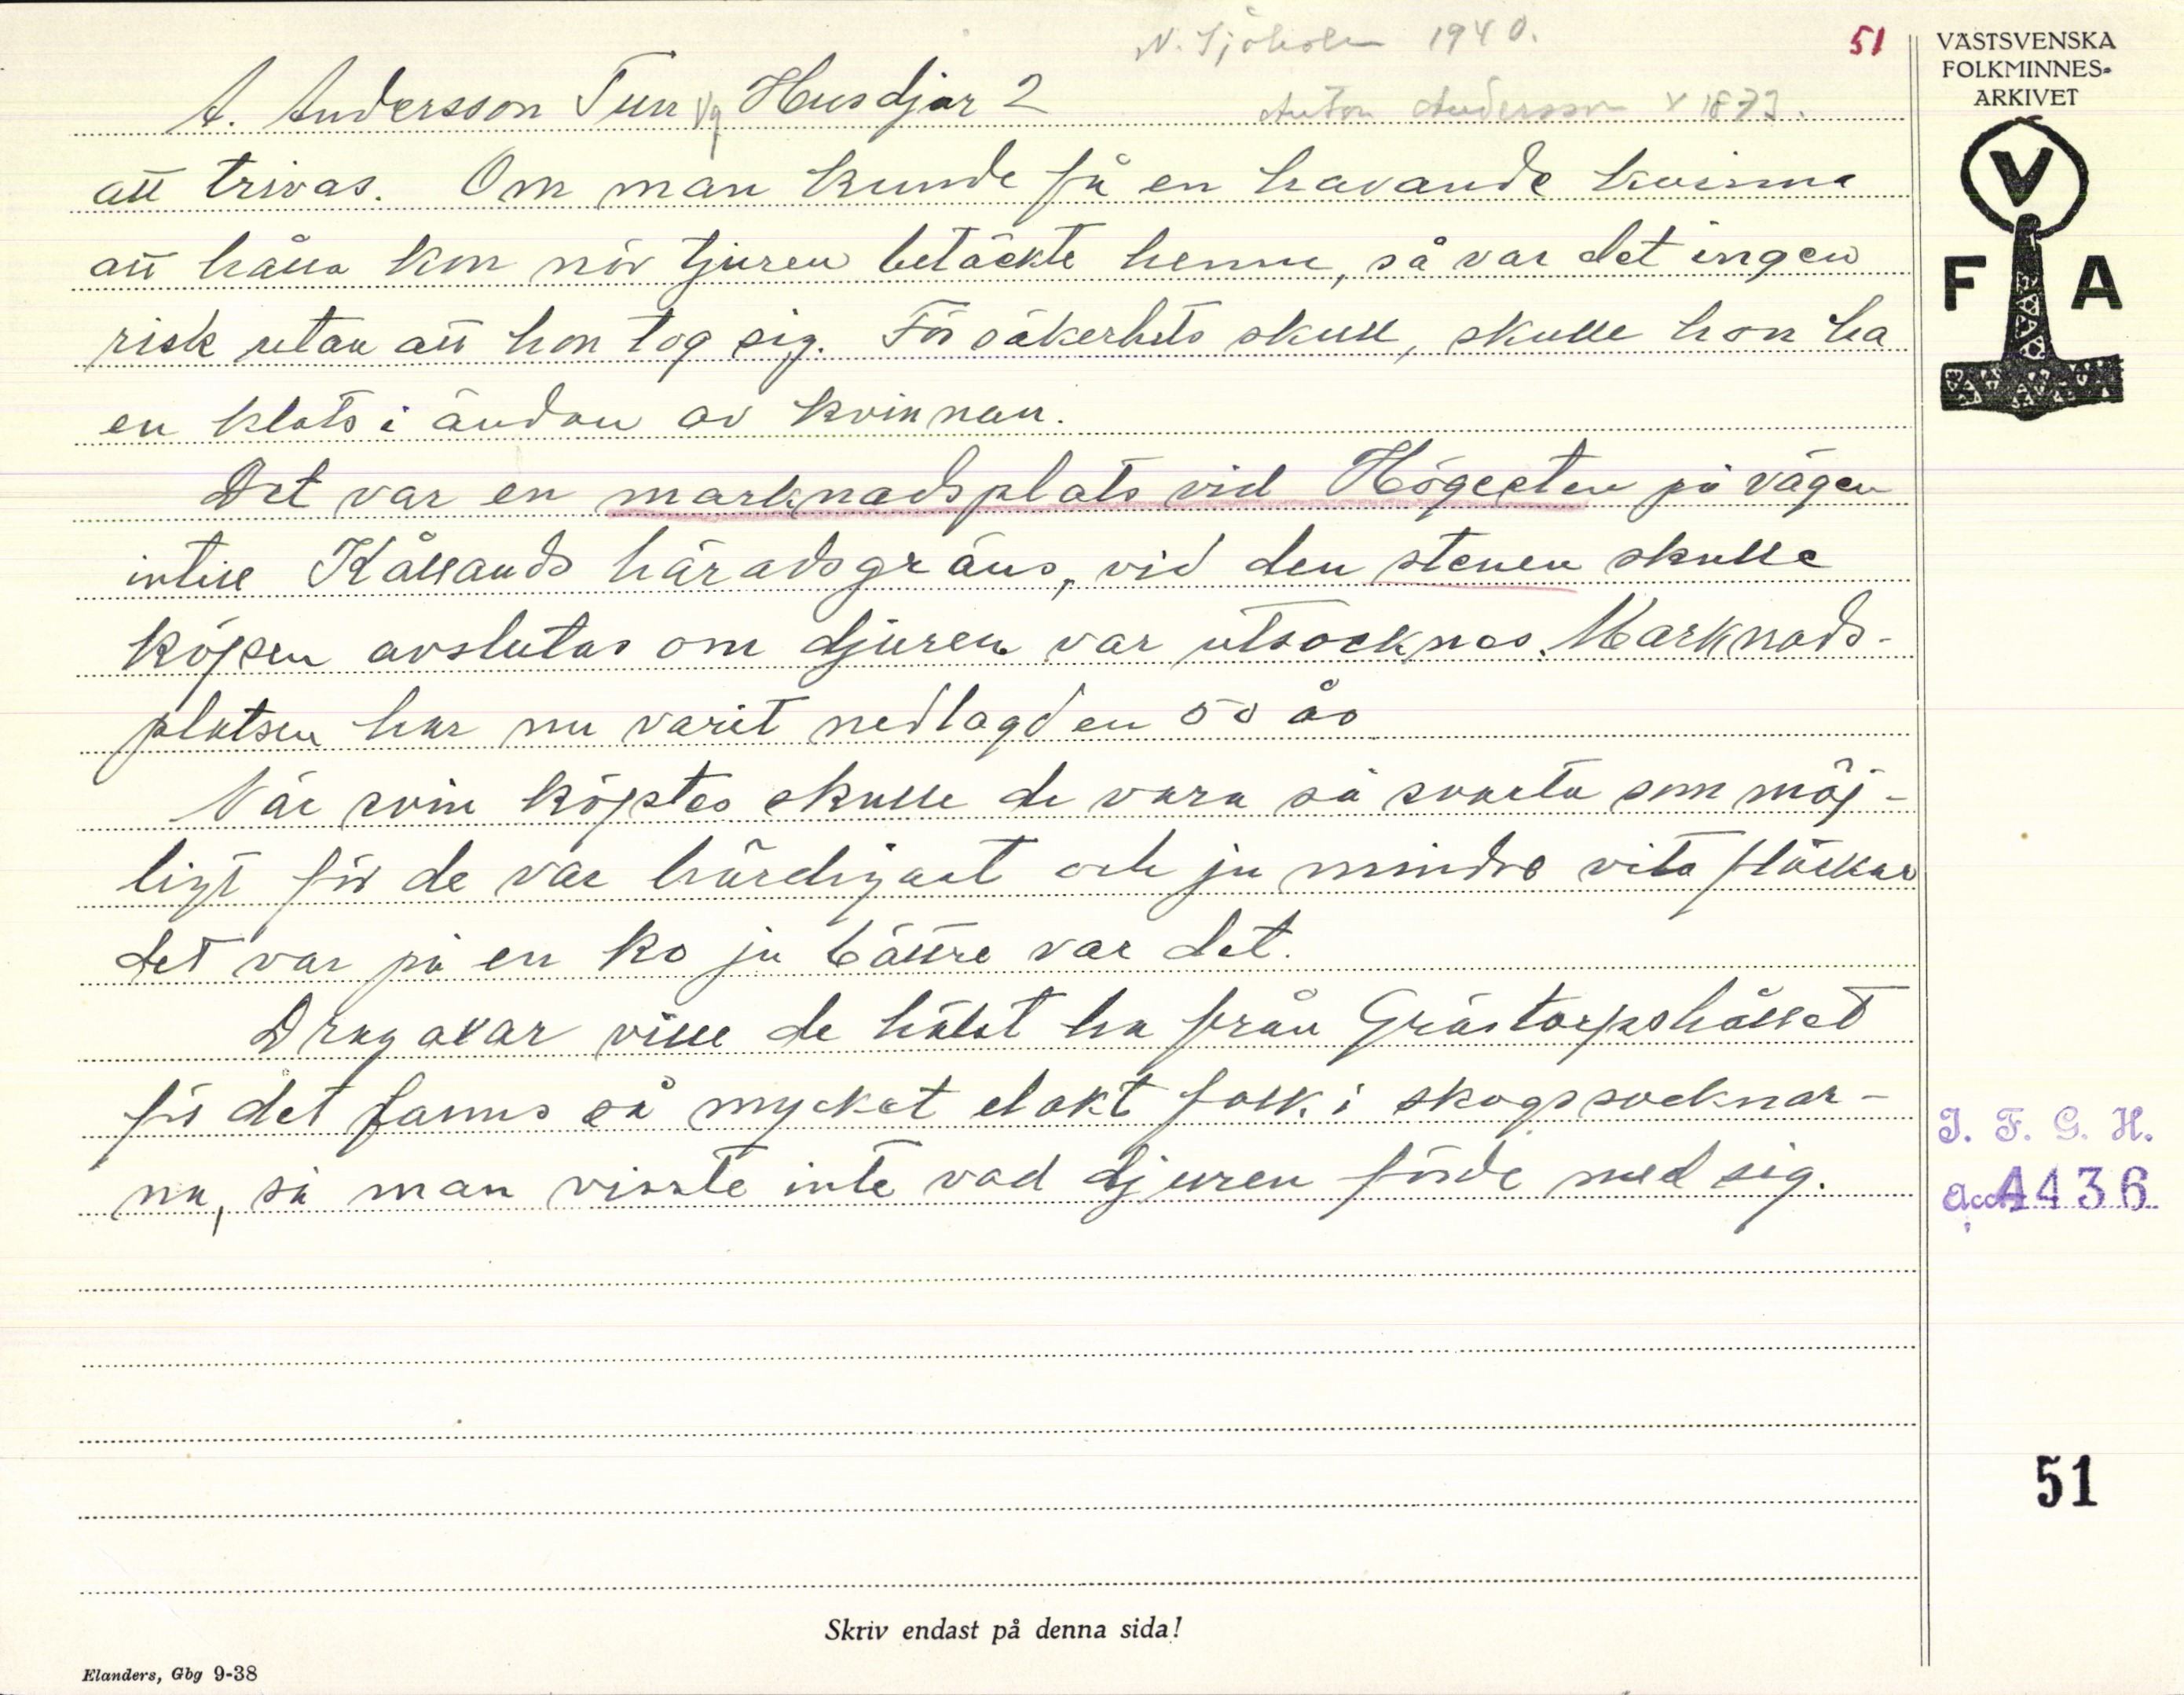 N. Sjöholm 1940.
51
A. Andersson Tun Vg Husdjur 2
Anton Andersson f 1873.
att trivas. Om man kunde få en havande kvinna
att hålla kon när tjuren betäckte henne, så var det ingen
risk utan att hon tog sig. För säkerhets skull, skulle hon ha
en klats i ändan av kvinnan.
Det var en marknadsplats vid Högesten på vägen
intill Kållands häradsgräns, vid den stenen skulle
köpen avslutas om djuren var utsocknes. Marknads-
platsen har nu varit nedlagd en 50 år
När svin köptes skulle de vara så svarta som möj-
ligt för de var härdigast och ju mindre vita fläckar
det var på en ko ju bättre var det.
Dragoxar ville de hälst ha från Grästorpshållet
för det fanns så mycket elakt folk i skogssocknar-
na, så man visste inte vad djuren förde med sig.
VÄSTSVENSKA
FOLKMINNES-
ARKIVET
V
F A
I. F. G. H.
Acc. 4436
51
Skriv endast på denna sida!
Elanders, Gbg 9-38